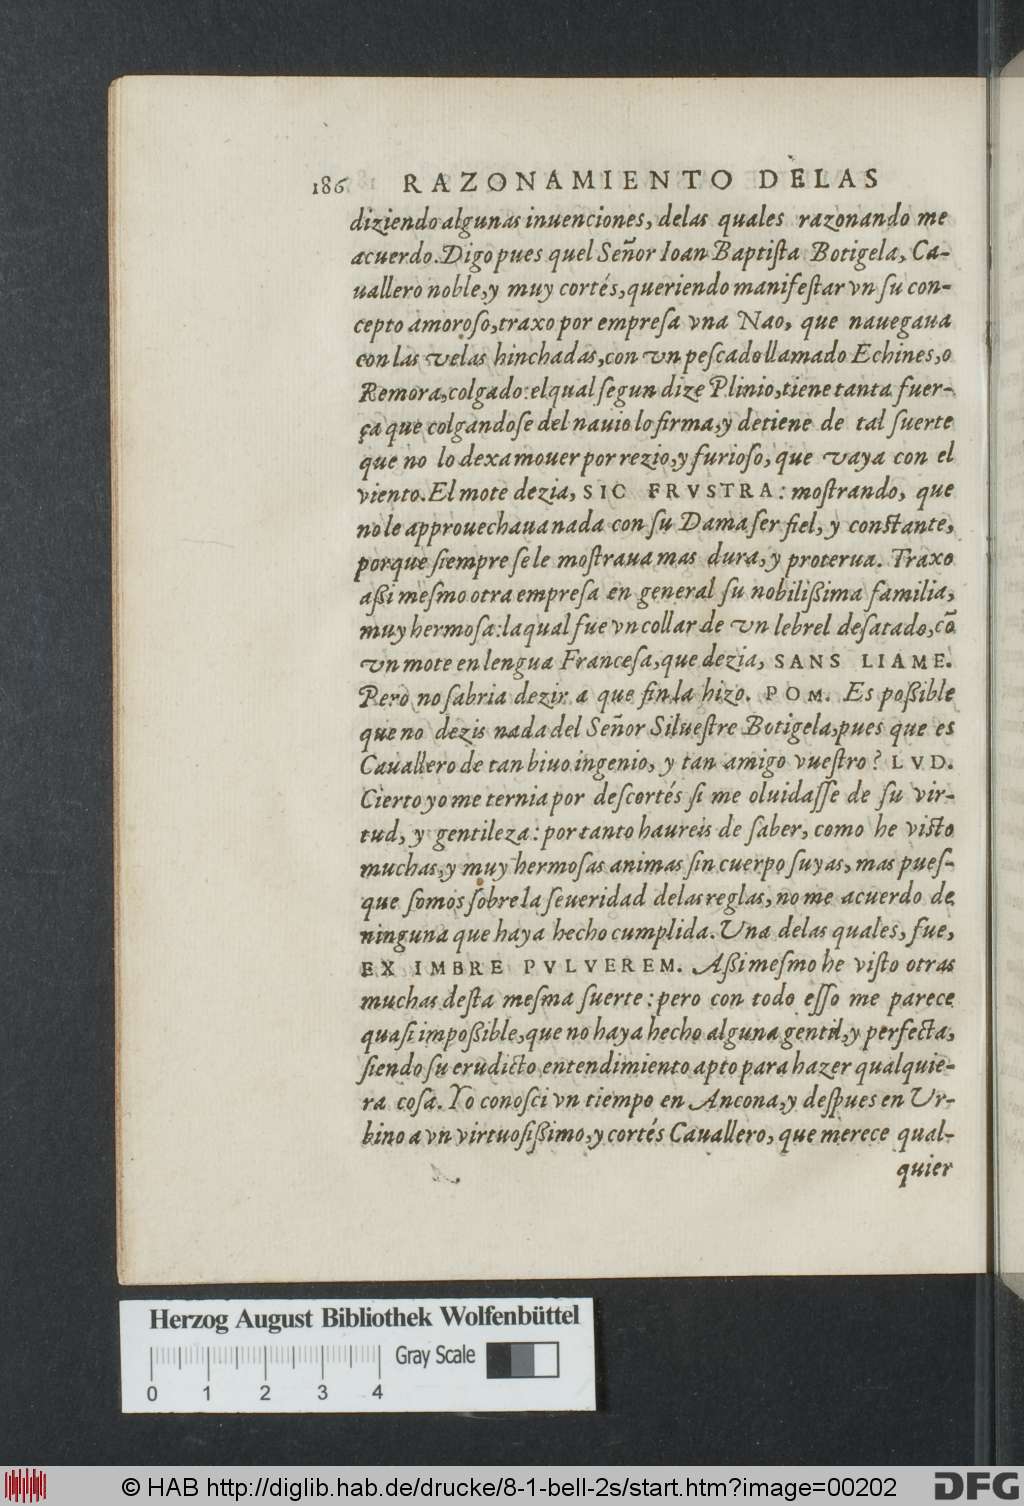 186 RAZONAMIENTO DELAS
diziendo algunas inuenciones, delas quales razonando me
acuerdo. Digo pues quel Señor Ioan Baptiſta Botigela, Ca-
uallero noble, y muy cortés, queriendo manifeſtar vn ſu con-
cepto amoroſo, traxo por empreſa vna Nao, que nauegaua
con las velas hinchadas, con vn peſcado llamado Echines, o
Remora, colgado: el qual ſegun dize Plinio, tiene tanta fuer-
ça que colgandoſe del nauio lo firma, y detiene de tal ſuerte
que no lo dexa mouer por rezio, y furioſo, que vaya con el
viento. El mote dezia, SIC FRVSTRA: moſtrando, que
no le approuechaua nada con ſu Dama ſer fiel, y conſtante,
porque ſiempre ſe le moſtraua mas dura, y proterua. Traxo
aßi meſmo otra empreſa en general ſu nobilißima familia,
muy hermoſa: la qual fue vn collar de vn lebrel deſatado, cõ
vn mote en lengua Franceſa, que dezia, SANS LIAME.
Pero no ſabria dezir a que fin la hizo. POM. Es poßible
que no dezis nada del Señor Silueſtre Botigela, pues que es
Cauallero de tan biuo ingenio, y tan amigo vueſtro? LVD.
Cierto yo me ternia por deſcortés ſi me oluidaſſe de ſu vir-
tud, y gentileza: por tanto haureis de ſaber, como he viſto
muchas, y muy hermoſas animas ſin cuerpo ſuyas, mas pueſ-
que ſomos ſobre la ſeueridad delas reglas, no me acuerdo de
ninguna que haya hecho cumplida. Una delas quales, fue,
EX IMBRE PVLVEREM. Aßi meſmo he viſto otras
muchas deſta meſma ſuerte: pero con todo eſſo me parece
quaſi impoßible, que no haya hecho alguna gentil, y perfecta,
ſiendo ſu erudicto entendimiento apto para hazer qualquie-
ra coſa. Yo conoſci vn tiempo en Ancona, y deſpues en Ur-
bino a vn virtuoſißimo, y cortés Cauallero, que merece qual-
quier
Herzog August Bibliothek Wolfenbüttel
Gray Scale
0 1 2 3 4
© HAB http://diglib.hab.de/drucke/8-1-bell-2s/start.htm?image=00202
DFG